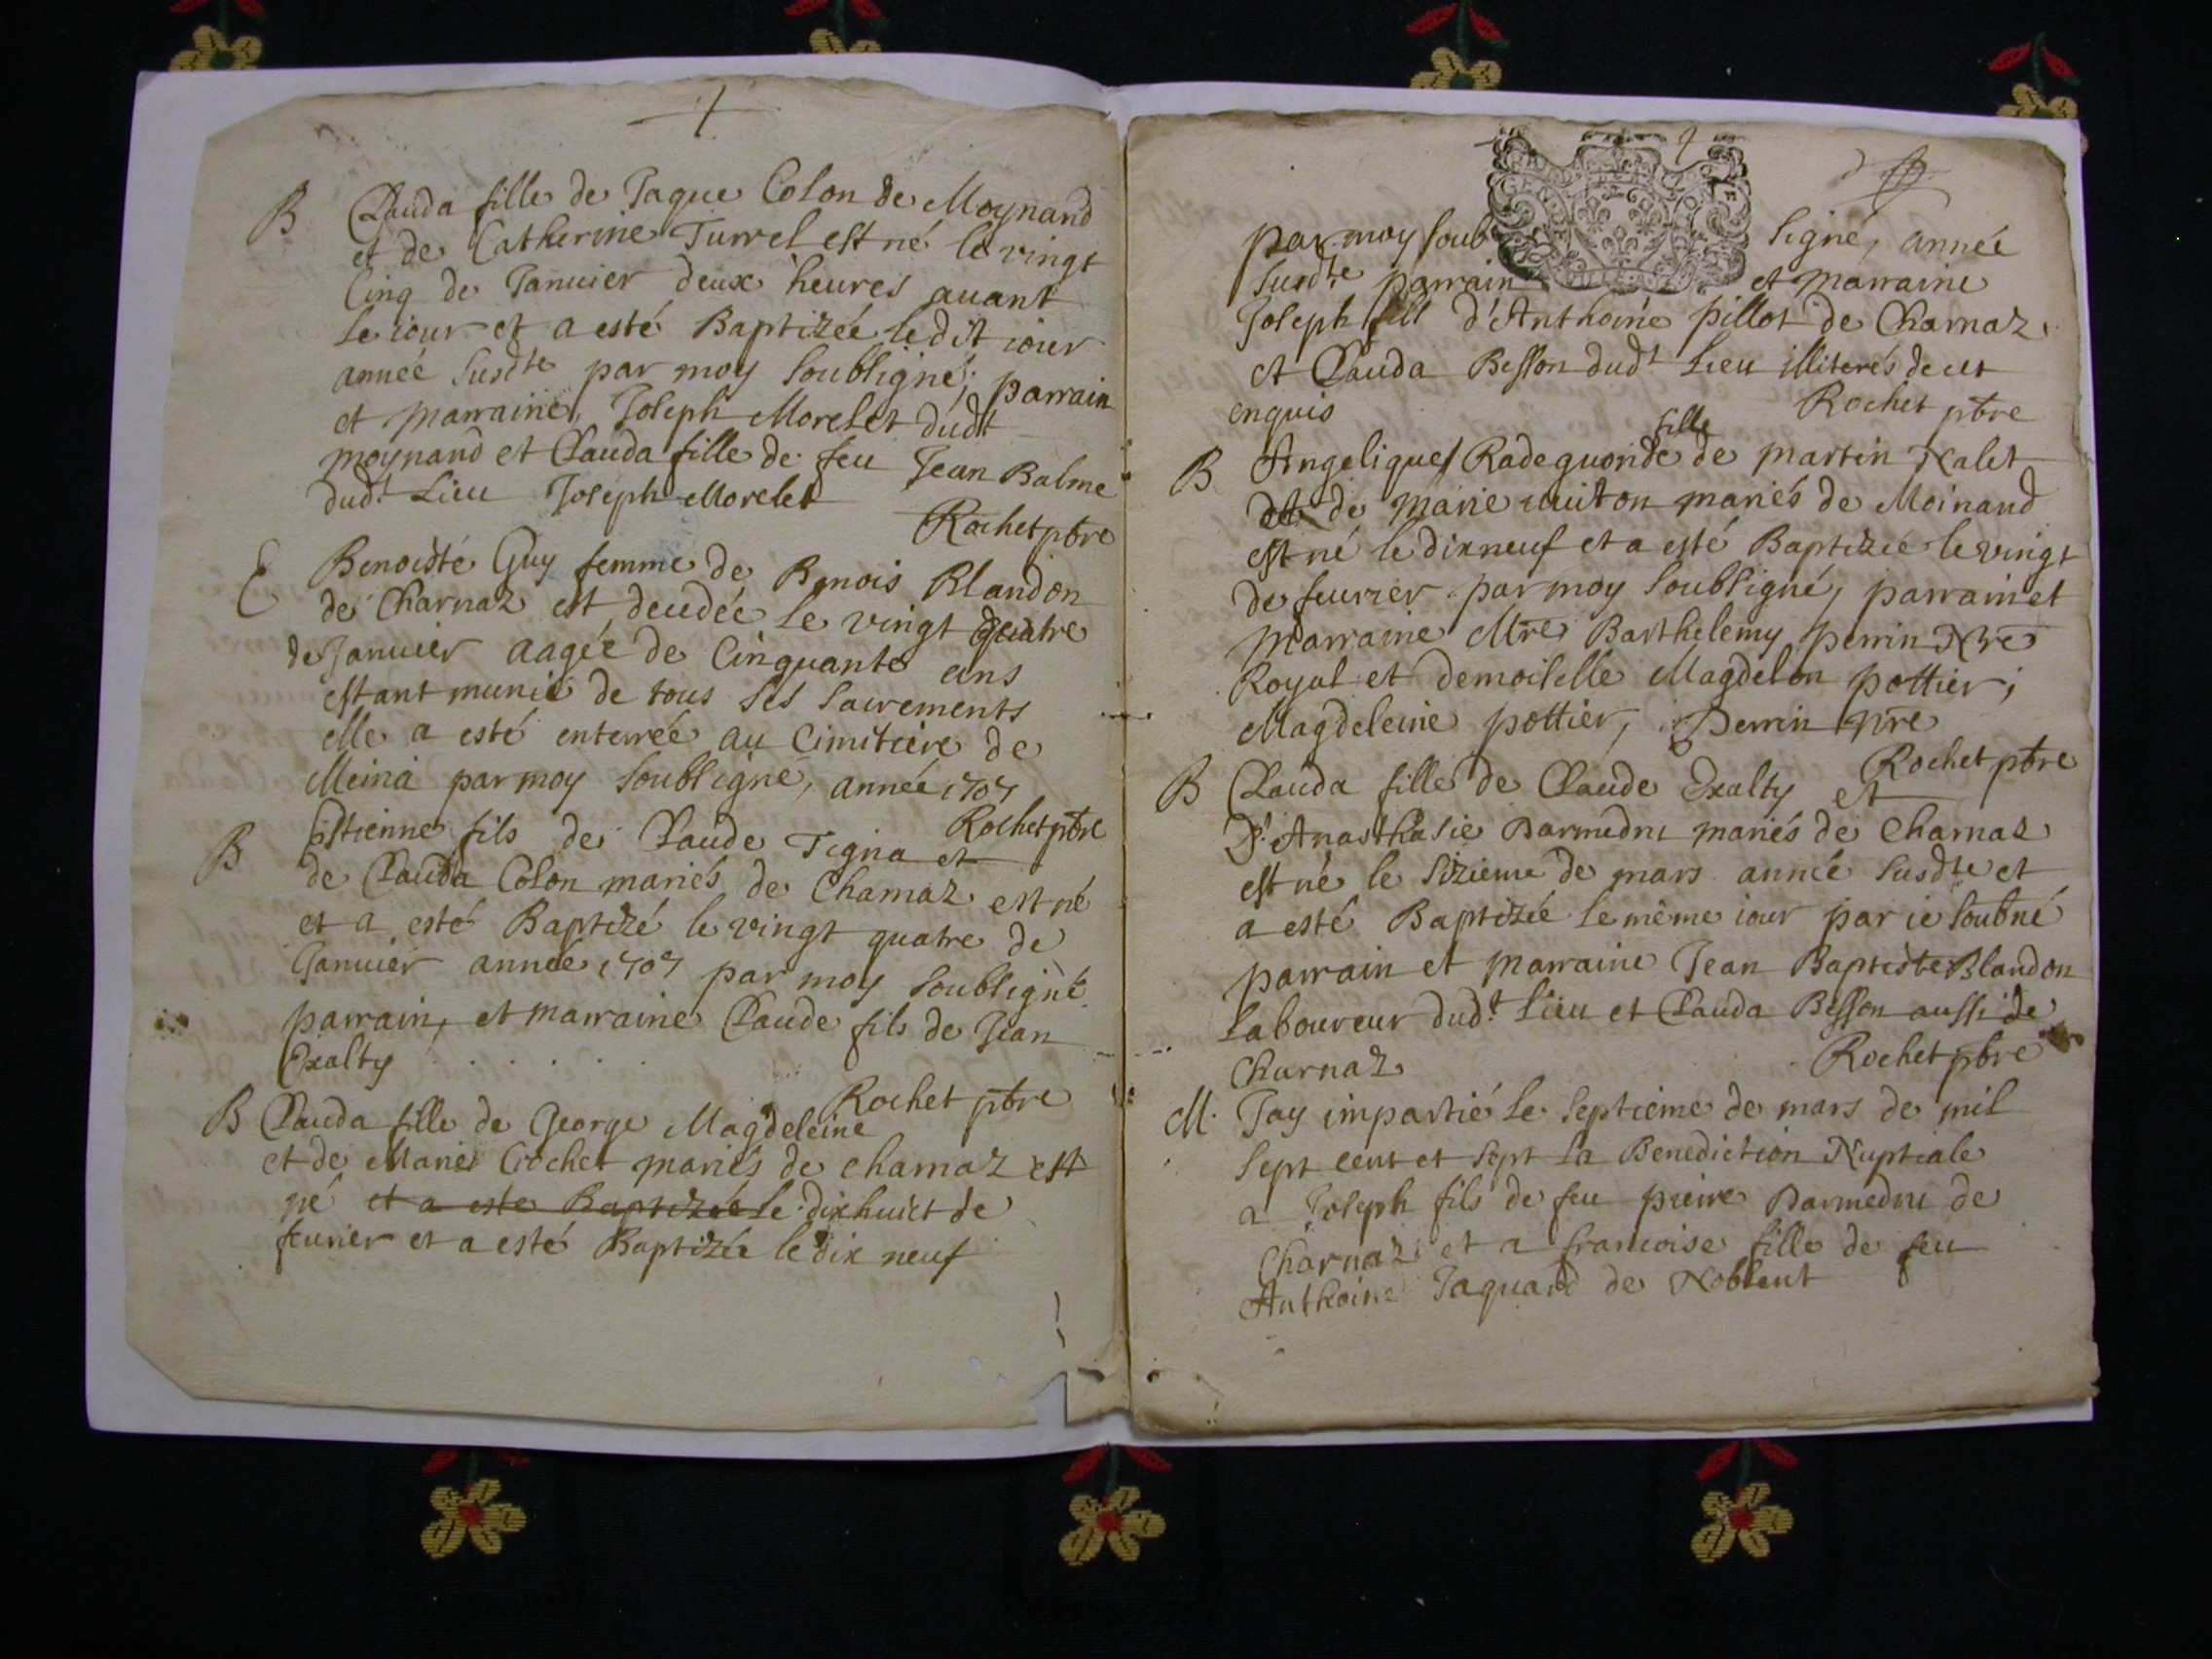 B Clauda fille de Jaque Colon de Moynand
et de Catherine Turrel est né le vingt
Cinq de Januier deux heures auant
le iour et a esté Baptizée ledit iour
année susdte par moy soubsigné; parrain
et marraine, Joseph Morelet dudt
moynand et Clauda fille de feu Jean Balme
dudt Lieu Joseph Morelet
Rochet pbre
E Benoiste Guy femme de Benois Blandon
de Charnaz est decedée le vingt quatre
de Januier aagée de Cinquante ans
estant munie de tous ses sacrements
elle a esté enterrée au Cimitiere de
Meina par moy soubsigné, année 1707
Rochet pbre
B Estienne fils de Claude Tigna et
de Clauda Colon mariés de Charnaz est né
et a esté Baptizé le vingt quatre de
Januier année 1707 par moy soubsigné
parrain, et marraine Claude fils de Jean
Exalty . . . . .
Rochet pbre
B Clauda fille de George Magdeleine
et de Marie Crochet mariés de charnaz est
né et a este Baptizée le dixhuict de
feurier et a esté Baptizée le dix neuf
par moy soub signé, année
susdte parrain et marraine
Joseph fill d'Anthoine pillot de Charnaz
et Clauda Besson dudt Lieu illiterés de ce
enquis
Rochet pbre
B Angelique Radeguonde fille de martin Nalet
et de marie mariés de Moinand
est né le dixneuf et a esté Baptizée le vingt
de feurier par moy soubsigné, parrain et
marraine Mre Barthelemy perrin Nre
Royal et demoiselle Magdelon pottier;
Magdeleine pottier, Perrin nre
Rochet pbre
B Clauda fille de Claude Exalty et
D'Anasthasie Darmedru mariés de Charnaz
est né le sizieme de mars année susdte et
a esté Baptizée le même iour par ie soubné
parrain et marraine Jean Baptiste Blandon
Laboureur dudt Lieu et Clauda Besson aussi de
Charnaz
Rochet pbre
M. Jay impartié le septieme de mars de mil
sept cent et sept la Benediction Nuptiale
a Joseph fils de feu pierre Darmedru de
Charnaz et a francoise fille de feu
Anthoine Jaquard de Noblent